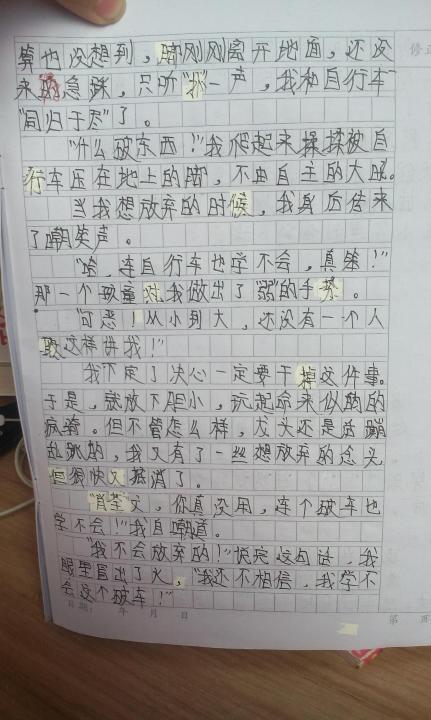 算也没想到，脚刚刚离开地面，还没
来的急踩，只听“扑”一声，我和自行车
“同归于尽”了。
“什么破东西！”我爬起来揉揉被自
行车压在地上的脚，不由自主的大吼。
当我想放弃的时候，我身后传来
了嘲笑声。
“哈，连自行车也学不会，真笨！”
那一个破童对我做出了“弱”的手势。
“可恶！从小到大，还没有一个人
敢这样讲我！”
我下定了决心一定要干掉这件事。
于是，就放下胆小，玩起命来似的的
疯骑。但不管怎么样，龙头还是活蹦
乱跳的，我又有了一丝想放弃的念头
但很快又打消了。
文，你真没用，连个破车也
学不会！”我自嘲道。
“我不会放弃的！”说完这句话，我
眼里冒出了火，“我还不相信，我学不
会这个破车！”
日期： 年 月 日
第 页
修正